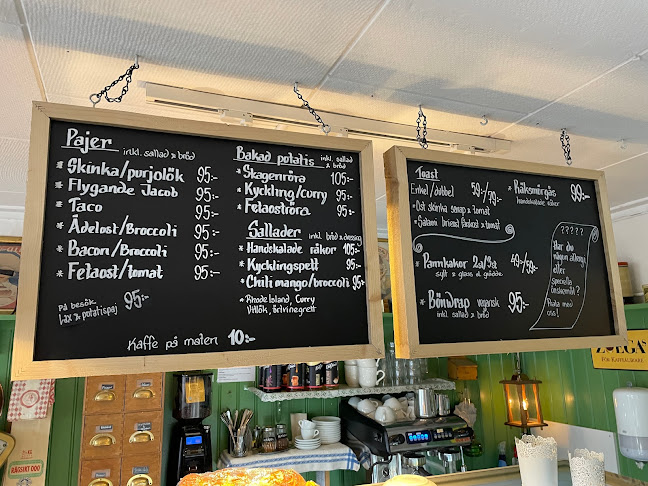 Pajer inkl. sallad & bröd
* Skinka/purjolök 95:-
* Flygande Jacob 95:-
* Taco 95:-
* Ädelost/Broccoli 95:-
* Bacon/Broccoli 95:-
* Fetaost/tomat 95:-
På besök.
Lax & potatispaj 95:-
Kaffe på maten 10:-
Bakad potatis inkl. sallad & bröd
* Skagenröra 105:-
* Kyckling/curry 95:-
* Fetaoströra 95:-
Sallader inkl. bröd & dressing
* Handskalade räkor 105:-
* Kycklingspett 95:-
* Chili mango/broccoli 95:-
* Rhode Island, Curry
Vitlök, örtvinegrett
Toast
Enkel/dubbel 59:-/79:-
* Ost skinka senap & tomat
* Salami brieost färskost & tomat
* Pannkakor 2a/3st 49:-/59:-
sylt & glass el. grädde
* Bönwrap vegansk 95:-
inkl. sallad & bröd
* Räksmörgås 99:-
handskalade räkor
?????
Har du
någon allergi
eller
speciella
önskemål?
Prata med
oss!
ZOÉGAS
FÖR KAFFEÄLSKARE